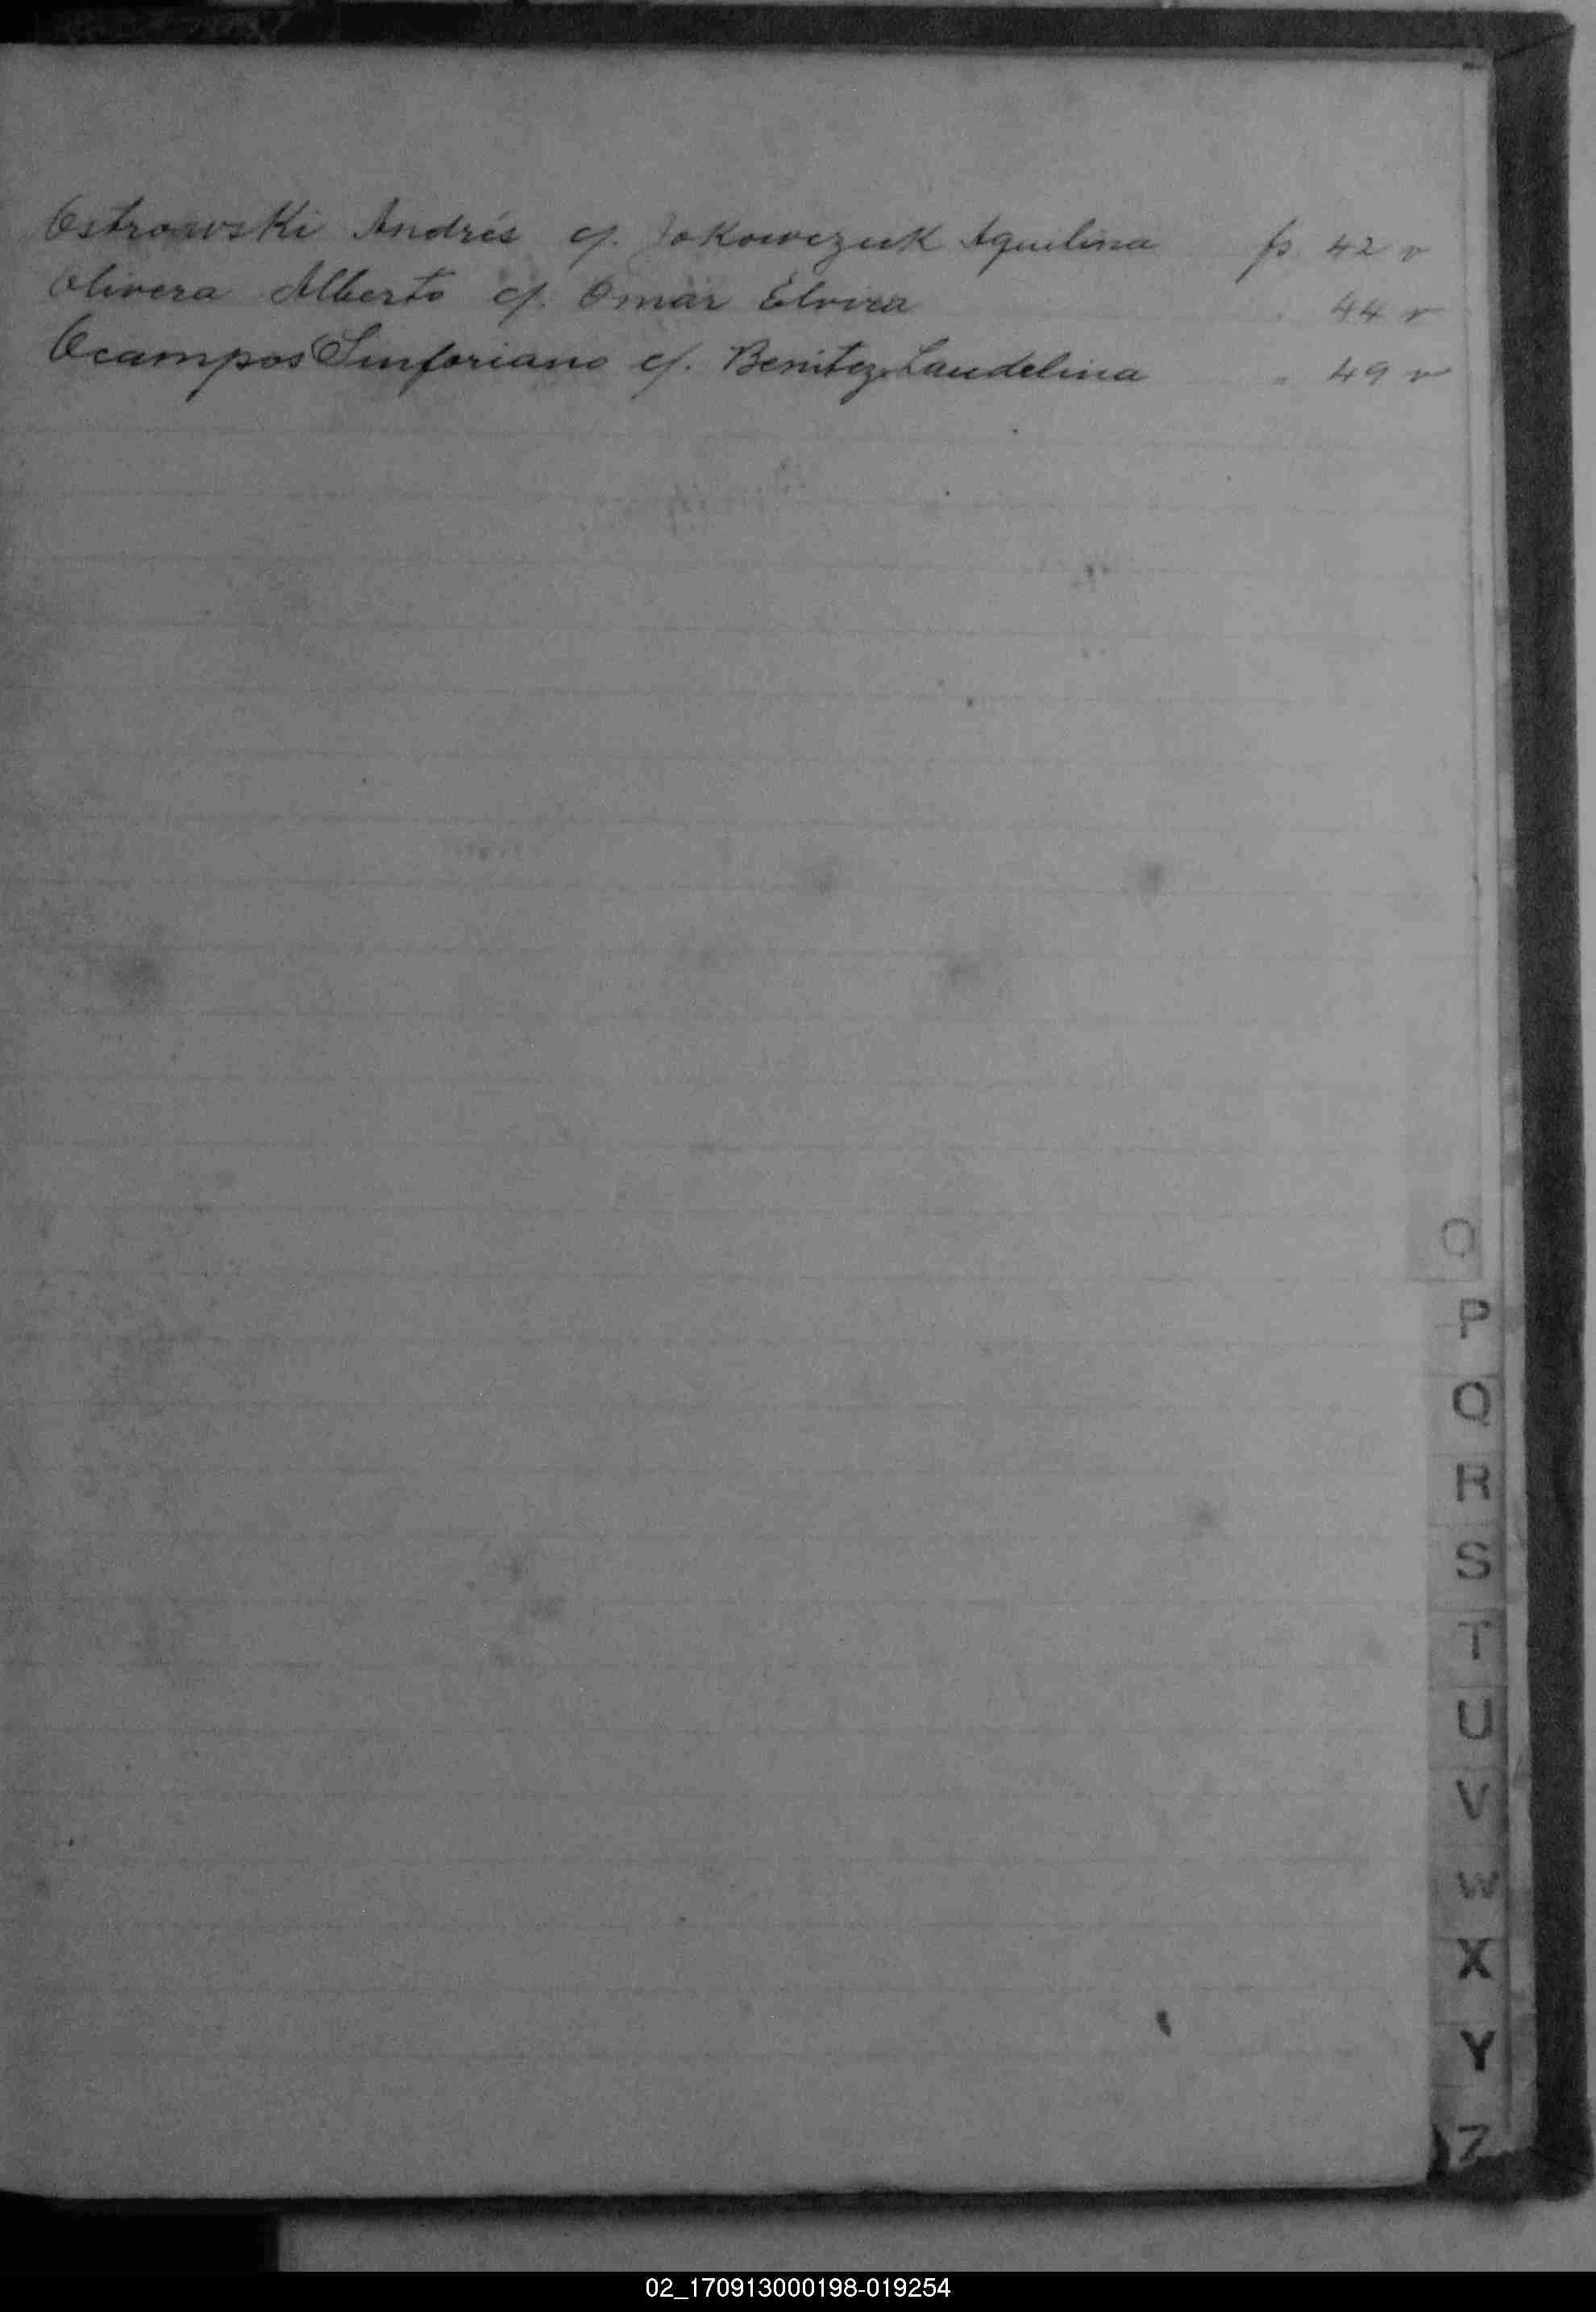 Ostrowski Andrés c/. Jakowczuk Aquilina fs. 42 v
Olivera Alberto c/. Omar Elvira " 44 v
Ocampos Sinforiano c/. Benitez Laudelina " 49 v
O
P
Q
R
S
T
U
V
W
X
Y
Z
02_170913000198-019254